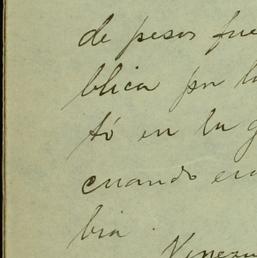 de pesos fue
blica por la
tó en la g
cuando era
bia.
Venezu